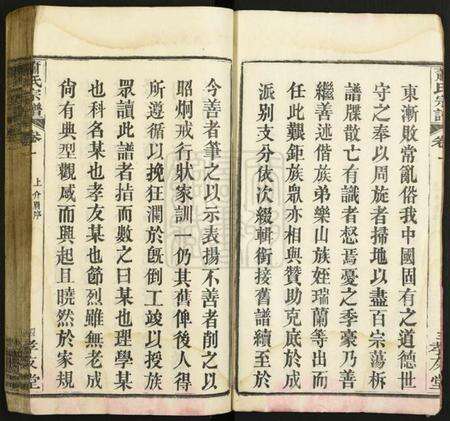 東漸敗常亂俗我中國固有之道德世
守之奉以周旋者掃地以盡百宗蕩析
譜牒散亡有識者惄焉憂之季豪乃善
繼善述偕族弟樂山族姪瑞蘭等出而
任此艱鉅族眾亦相與贊助克底於成
派別支分依次綴輯銜接舊譜續至於
今善者筆之以示表揚不善者削之以
昭炯戒行狀家訓一仍其舊俾後人得
所遵循以挽狂瀾於既倒工竣以授族
眾讀此譜者指而數之曰某也理學某
也科名某也孝友某也節烈雖無老成
尚有典型觀感而興起且曉然於家規
蕭氏宗譜
卷一
上介周序
孝友堂
蕭氏宗譜
卷一
孝友堂